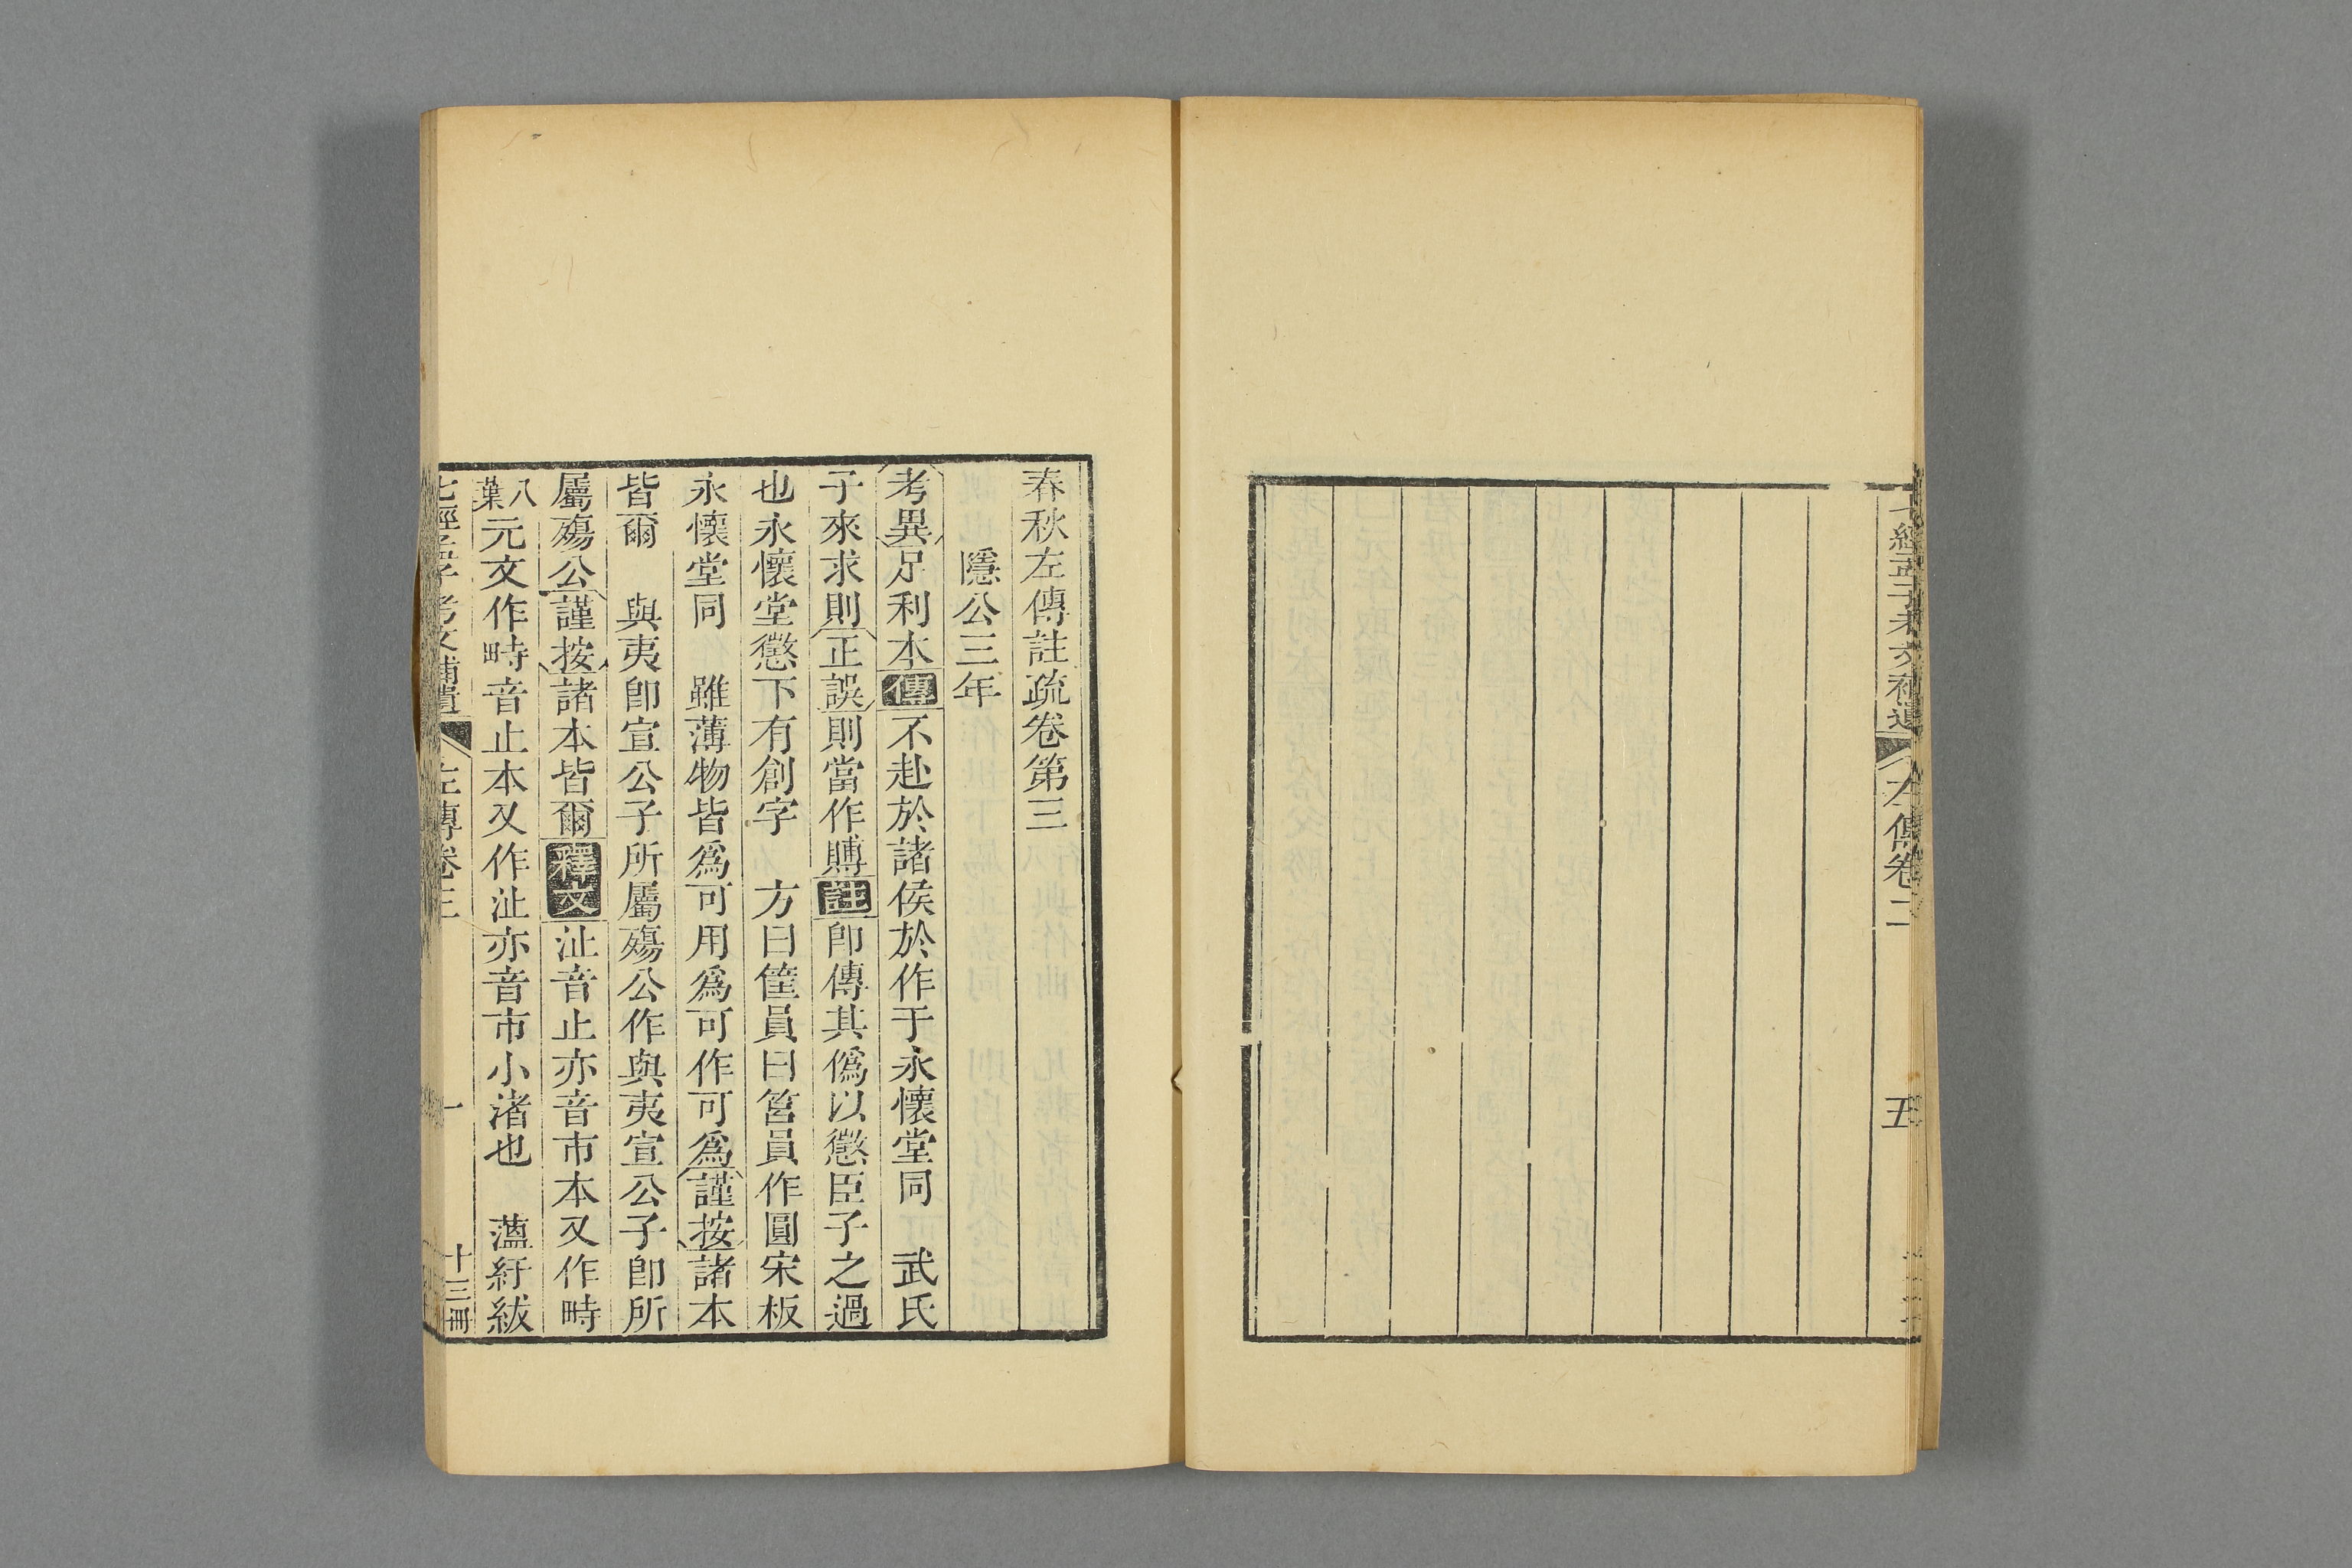 七經孟子考文補遺 左傳卷二 五
春秋左傳註疏卷第三
隱公三年
考異足利本傳不赴於諸侯於作于永懷堂同 武氏
子來求則正誤則當作賻註卽傳其僞以懲臣子之過
也永懷堂懲下有創字 方曰筐員曰筥員作圓宋板
永懷堂同 雖薄物皆爲可用爲可作可爲謹按諸本
皆爾 與夷卽宣公子所屬殤公作與夷宣公子卽所
屬殤公謹按諸本皆爾釋文沚音止亦音市本又作畤
八葉元文作畤音止本又作沚亦音市小渚也 薀紆紱
七經孟子考文補遺 左傳卷三 一 十三冊